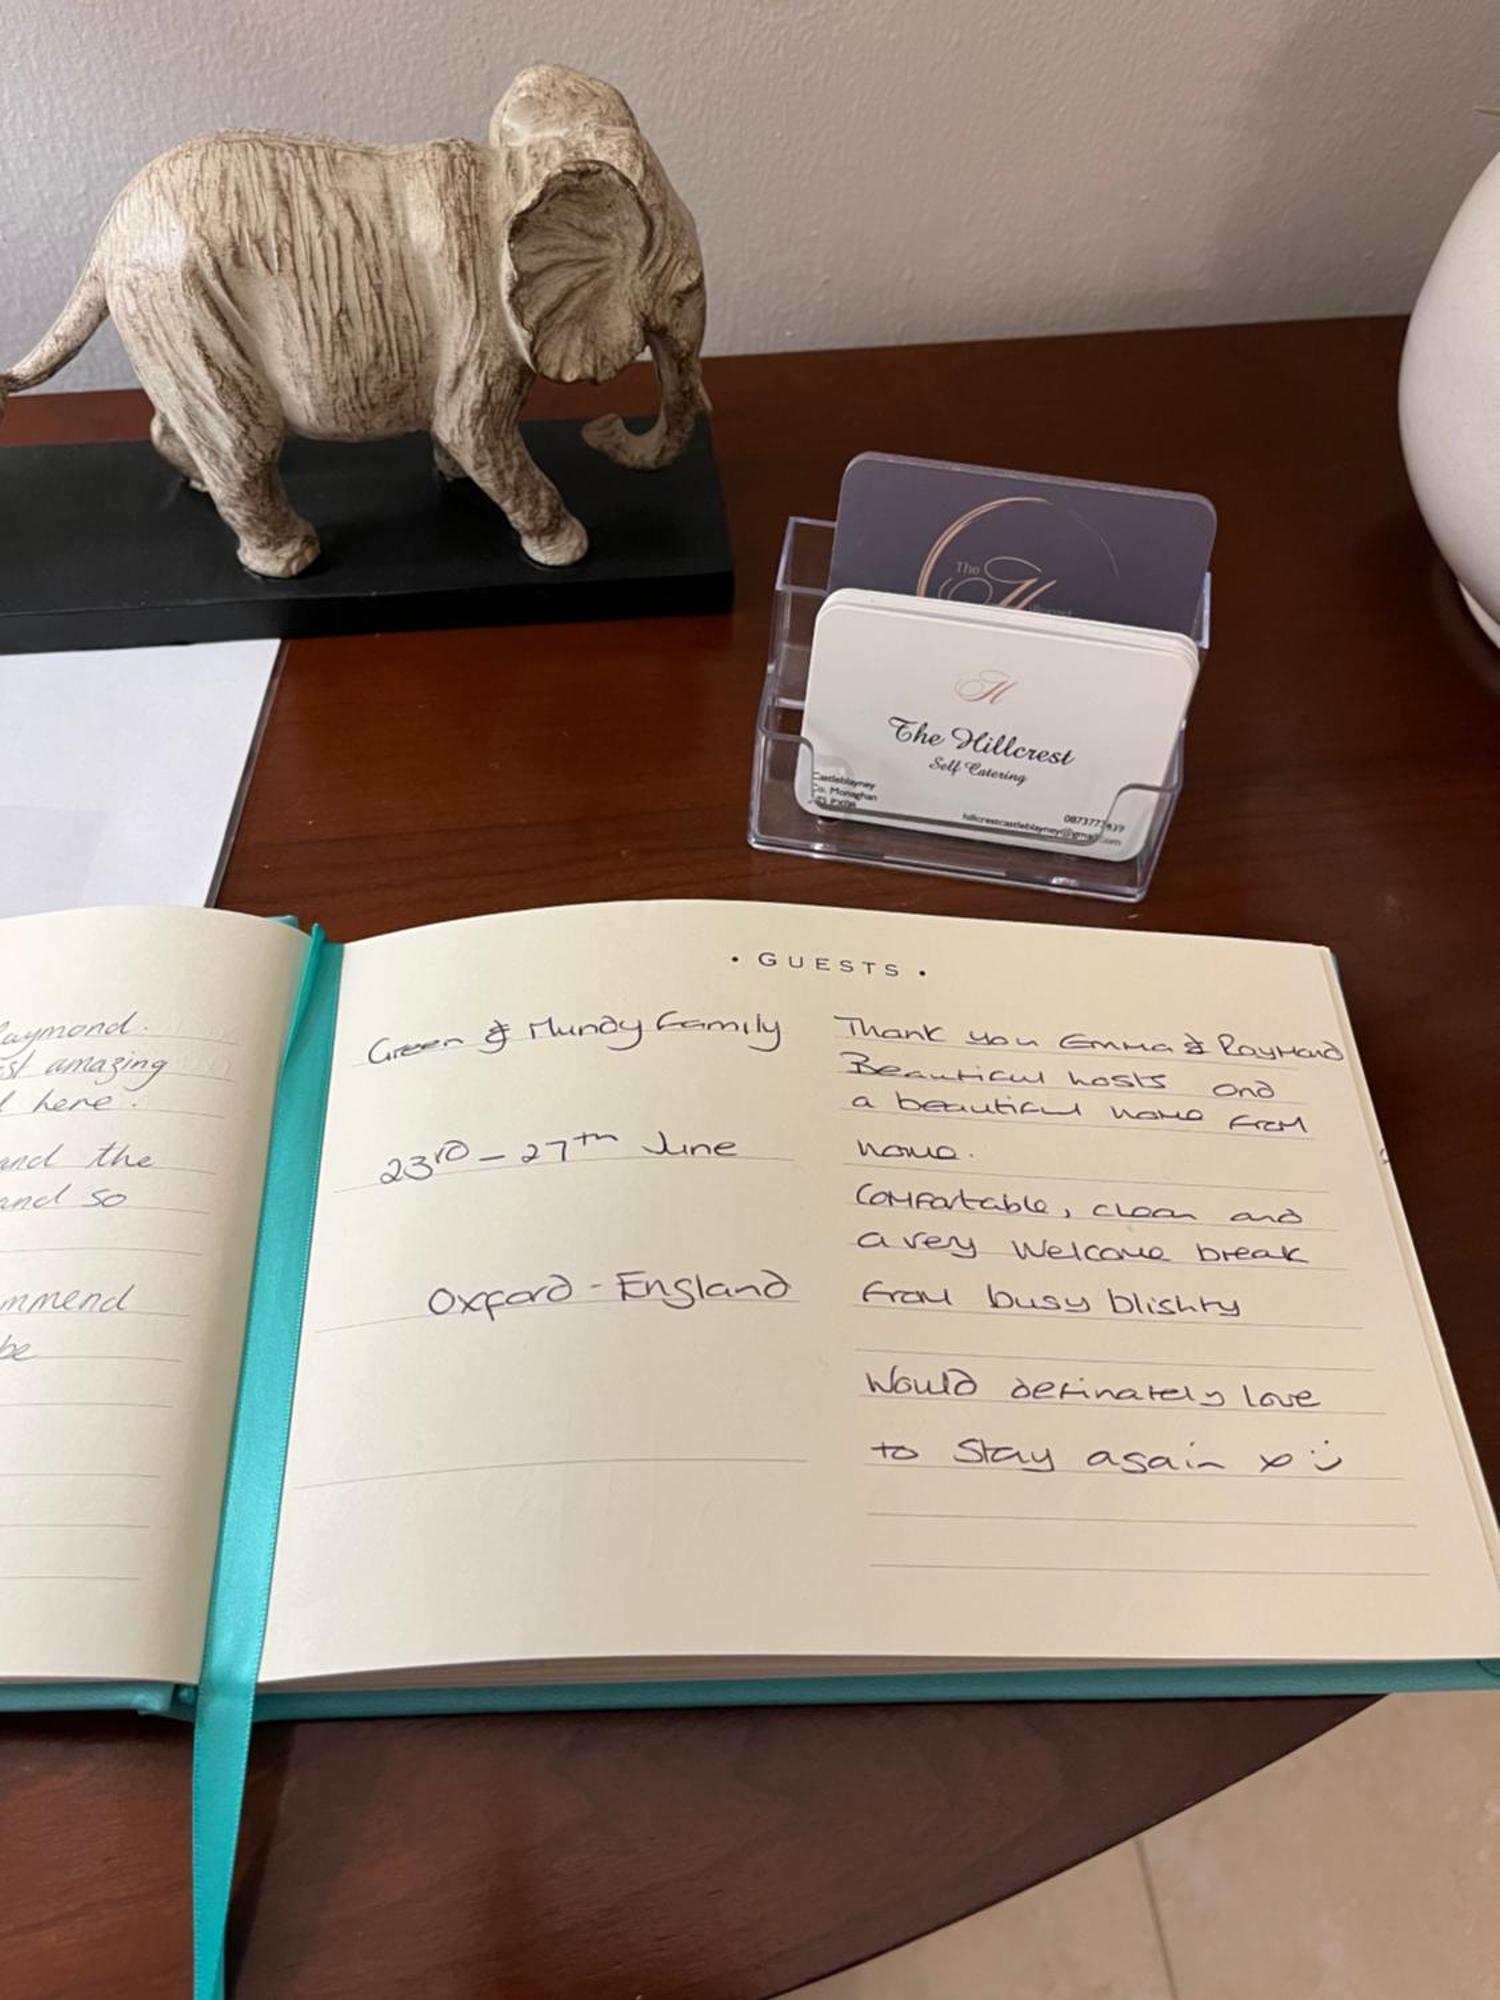 The
Hillcrest
H
The Hillcrest
Self Catering
Castleblayney
Co. Monaghan
0873773
hillcrestcastleblayney@gmail.com
• GUESTS •
aymond.
st amazing
here.
and the
and so
mmend
be
Green & Mundy Family
23rd – 27th June
Oxford - England
Thank you Emma & Raymond
Beautiful hosts and
a beautiful home from
home.
Comfortable, clean and
a very welcome break
from busy blighty
Would definately love
to stay again x :)